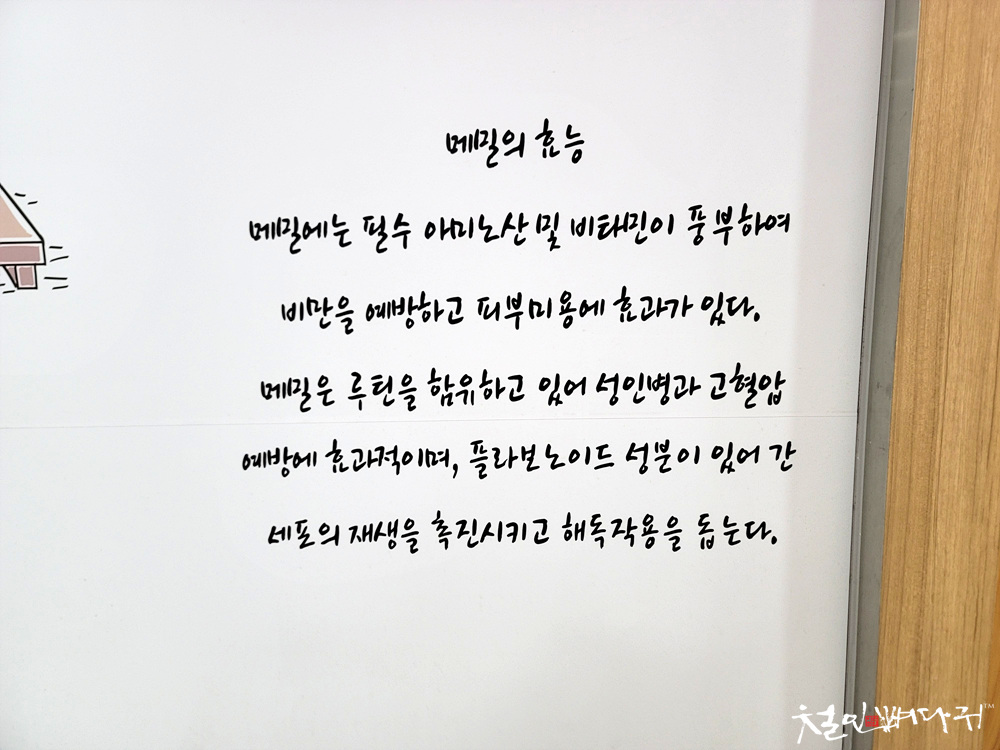 메밀의 효능
메밀에는 필수 아미노산 및 비타민이 풍부하여
비만을 예방하고 피부미용에 효과가 있다.
메밀은 루틴을 함유하고 있어 성인병과 고혈압
예방에 효과적이며, 플라보노이드 성분이 있어 간
세포의 재생을 촉진시키고 해독작용을 돕는다.
철인뼈다귀™